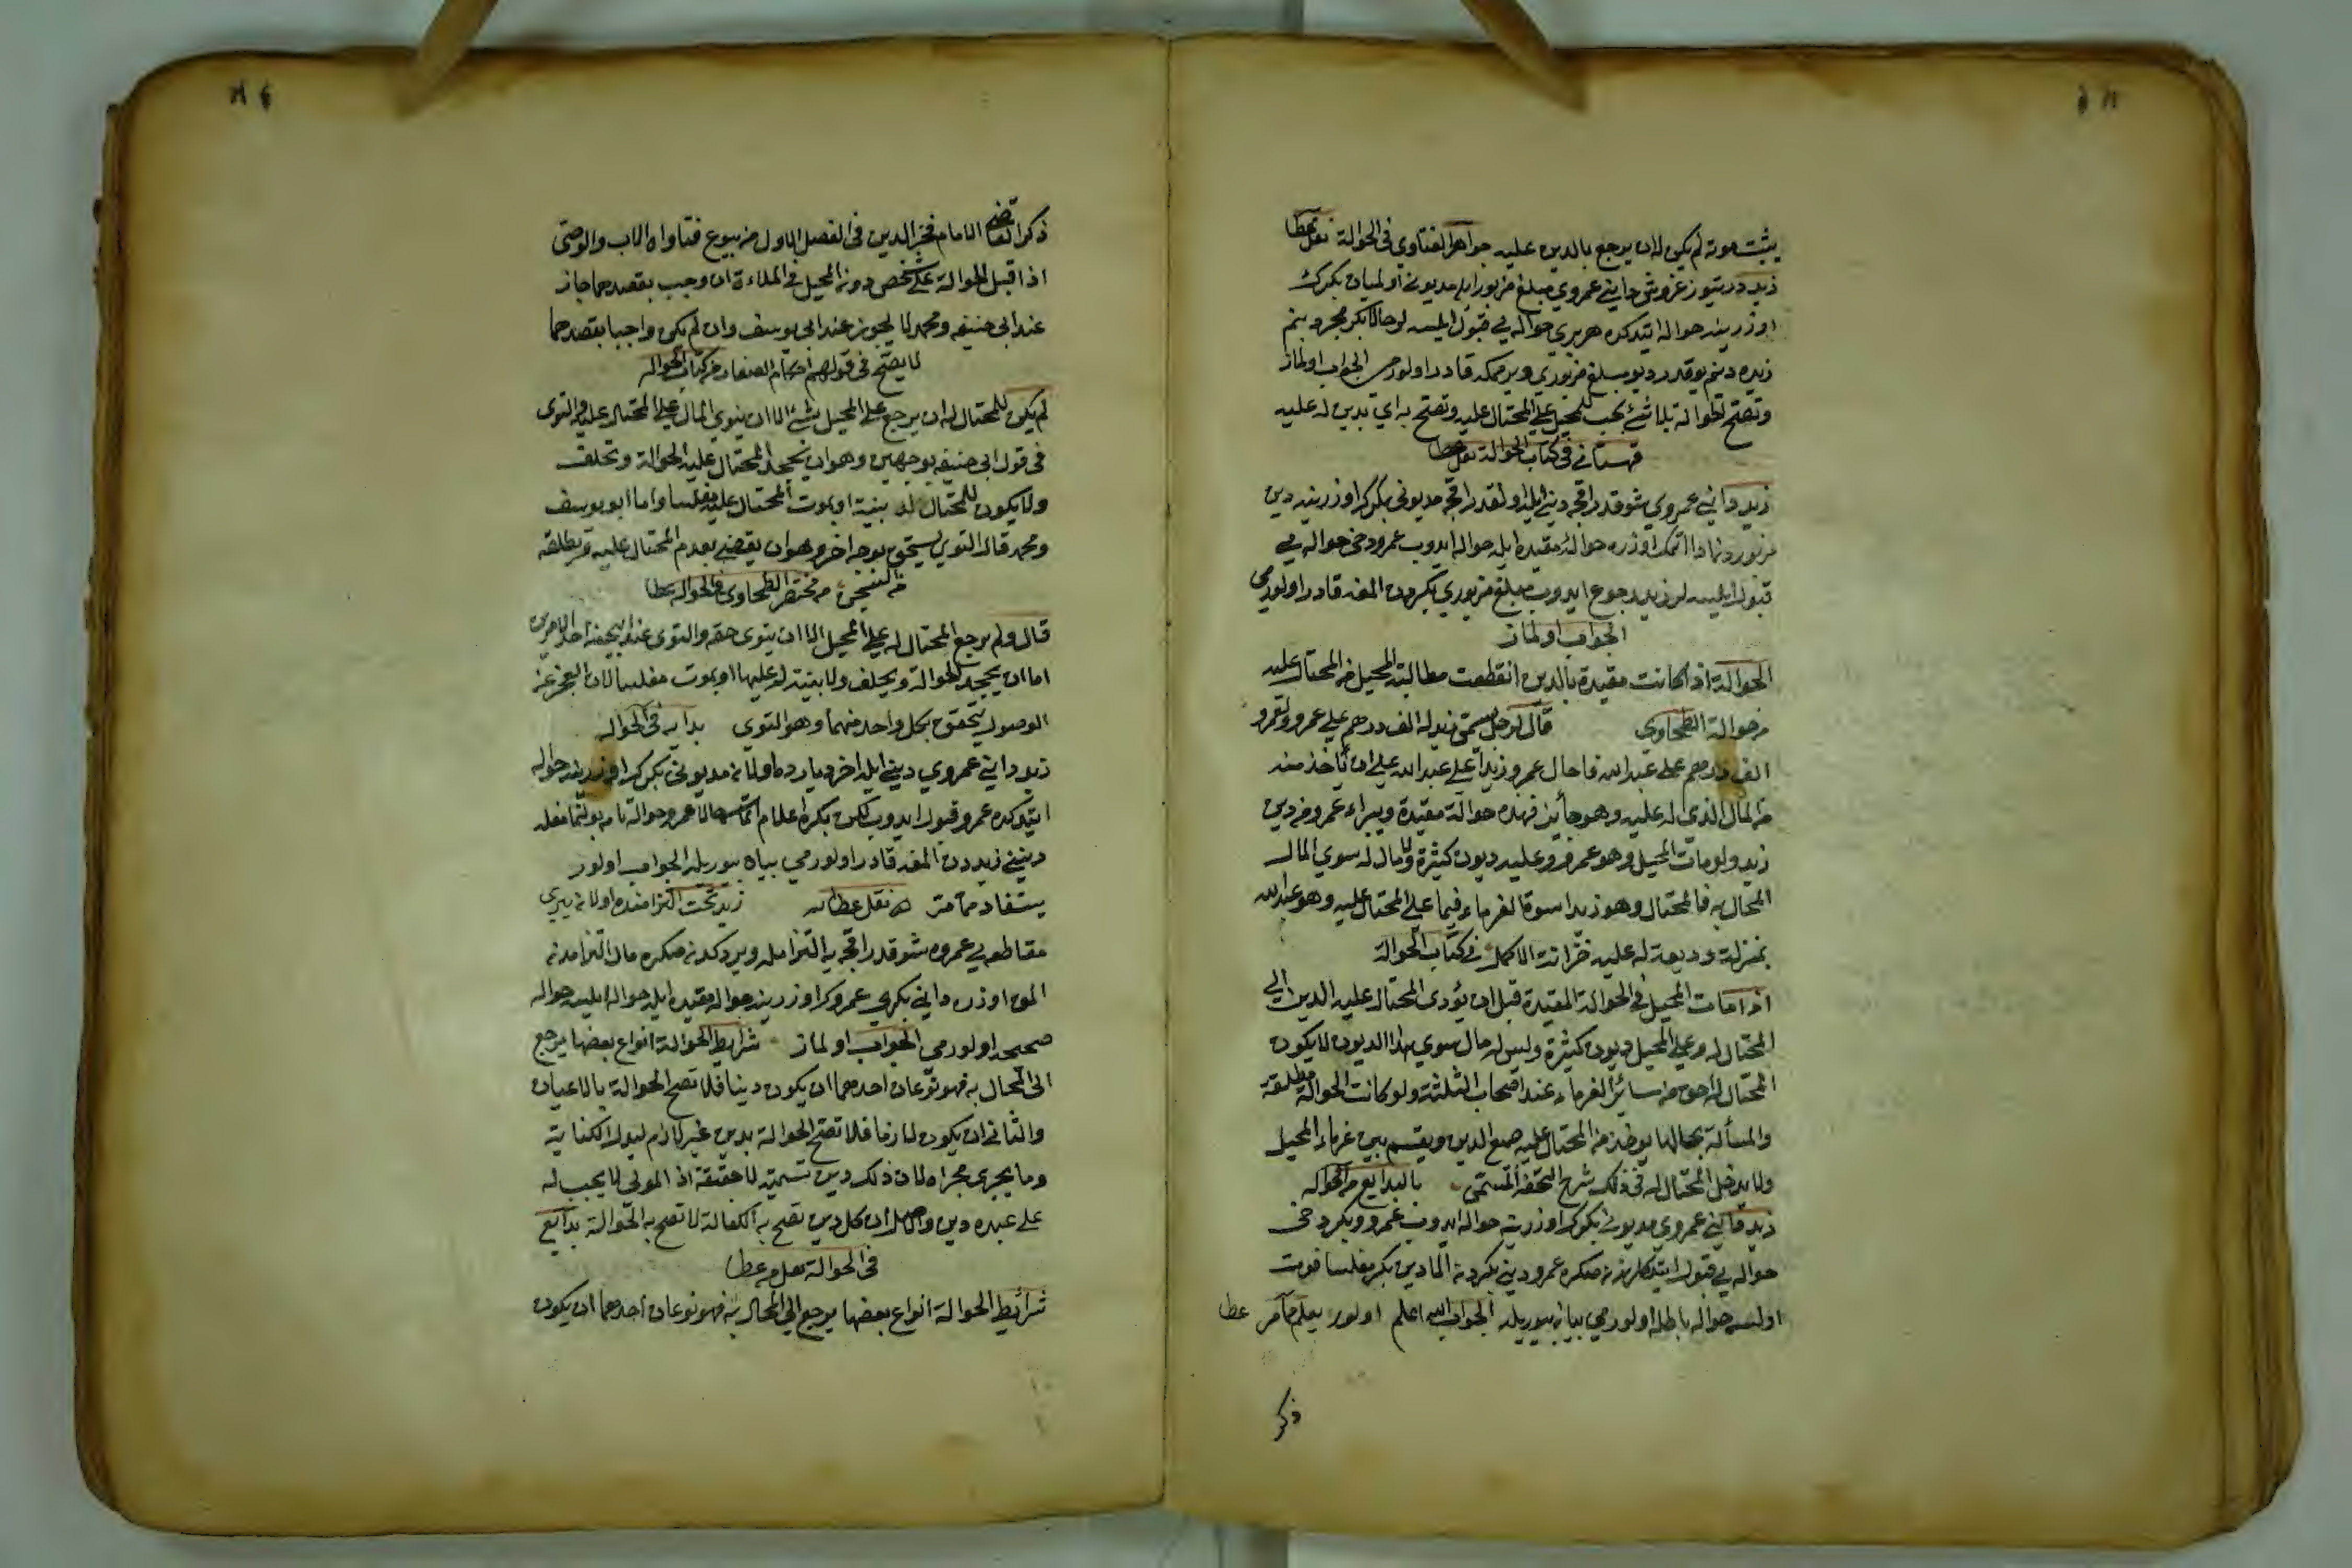 يثبت موته لم يكن له ان يرجع بالدين عليه جواهر الفتاوى فى الحوالة نقل عطا
زيد درتيوز غروش دايني عمروي مبلغ مزبور ايله مديونى اولميان بكرك
اوزرينه حواله ايتدكده هر برى حواله يي قبول ايلسه لر حالا بكر مجرد بنم
زيده دينم يوقدر ديو مبلغ مزبوري ويرممكه قادر اولورمى الجواب اولماز
وتصح الحوالة بلا شئ يجب للمحيل على المحتال عليه وتصح به اي بدين له عليه
قهستاني فى كتاب الحوالة نقل عطا
زيد دايني عمروي شو قدر اقچه ديني ايله اولقدر اقچه مديونى بكرك اوزرينه دين
مزبوردن ادا اتمك اوزره حوالۀ مقيده ايله حواله ايدوب عمرو دخى حواله يي
قبول ايلسه لر زيد رجوع ايدوب مبلغ مزبوري بكردن المغه قادر اولورمى
الجواب اولماز
الحوالة اذا كانت مقيدة بالدين انقطعت مطالبة المحيل من المحتال عليه
من حوالة الطحاوي قال رجل يسمى زيد له الف درهم على عمرو ولعمرو
الف درهم على عبد الله فاحال عمرو زيدا على عبد الله على ان يأخذ منه
من المال الذي له عليه وهو جائز فهذه حوالة مقيدة ويبراء عمرو من دين
زيد ولو مات المحيل وهو عمرو وعليه ديون كثيرة ولا مال له سوي المال
المحال به فالمحتال وهو زيد اسوة الغرماء فيما على المحتال عليه وهو عبد الله
بمنزلة وديعة له عليه خزانة الاكمل فى كتاب الحوالة
اذا مات المحيل فى الحوالة المقيدة قبل ان يؤدى المحتال عليه الدين الى
المحتال له وعلى المحيل ديون كثيرة وليس له مال سوي هذا الديون لا يكون
المحتال له احق من سائر الغرماء عند اصحاب الثلثة ولو كانت الحوالة مطلقة
والمسألة بحالها يوخذ من المحتال عليه جميع الدين ويقسم بين غرماء المحيل
ولا يدخل المحتال له فى ذلك شرح التحفة المسمى بالبدايع من الحواله
زيد دايني عمروي مديونى بكرك اوزرينه حواله ايدوب عمرو وبكر دخى
حواله يي قبول ايتدكلرندن صكره عمرو ديني بكردن المادين بكر مفلسا فوت
اولسه حواله باطله اولورمى بيان بيوريله الجواب الله اعلم اولور يعلم مما مر عطا
ذكر
ذكر القاضى الامام فخر الدين فى الفصل الاول من بيوع فتاواه الاب والوصى
اذا قبل الحوالة على شخص دون المحيل فى الملاءة ان وجب بعقدهما جاز
عند ابى حنيفه ومحمد لا يجوز عند ابى يوسف وان لم يكن واجبا بعقدهما
لا يصح فى قولهم احكام الصغار من كتاب الحواله
لم يكن للمحتال له ان يرجع على المحيل بشئ الا ان يتوي المال على المحتال عليه والتوى
فى قول ابى حنيفه بوجهين وهو ان يجحد المحتال عليه الحوالة وتحلف
ولا يكون للمحتال له بينة او يموت المحتال عليه مفلسا واما ابو يوسف
ومحمد قالا التوي يستحق بوجه اخر وهو ان يقضى بعدم المحتال عليه وتطلقه
من السجن من مختصر الطحاوى فى الحواله عطا
قال ولم يرجع المحتال له على المحيل الا ان يتوى حقه والتوى عند ابيحنيفه احد الامرين
اما ان يجحد الحوالة ويحلف ولا بينة له عليها او يموت مفلسا لان العجز عن
الوصول يتحقق بكل واحد منهما وهو التوي بدايه فى الحواله
زيد دايني عمروي ديني ايله اخر ديارده اولان مديونى بكرك اوزرينه حواله
ايتدكده عمرو قبول ايدوب لكن بكره اعلام اتمسه حالا عمرو حواله تامه بولنمامغله
دينني زيددن المغه قادر اولورمى بيان بيوريله الجواب اولور
يستفاد مما مر نقل عطا زيد تحت التزامنده اولان يري
مقاطعه يي عمروه شو قدر اقچه يه التزامله ويردكدن صكره مال التزامدن
المق اوزره دايني بكري عمروك اوزرينه حواله مقيده ايله حواله ايلسه حواله
صحيحه اولورمى الجواب اولماز شرايط الحوالة انواع بعضها يرجع
الى المحال به فهو نوعان احدهما ان يكون دينا فلا تصح الحوالة بالاعيان
والثانى ان يكون لازما فلا تصح الحوالة بدين غير لازم كبدل الكتابة
وما يجرى مجراه لان ذلك دين تسمية لا حقيقة اذ المولى لا يجب له
على عبده دين والاصل ان كل دين تصح به الكفالة لا تصح به الحوالة بدايع
فى الحوالة نقل من عطا
شرائط الحوالة انواع بعضها يرجع الى المحال به فهو نوعان احدهما ان يكون